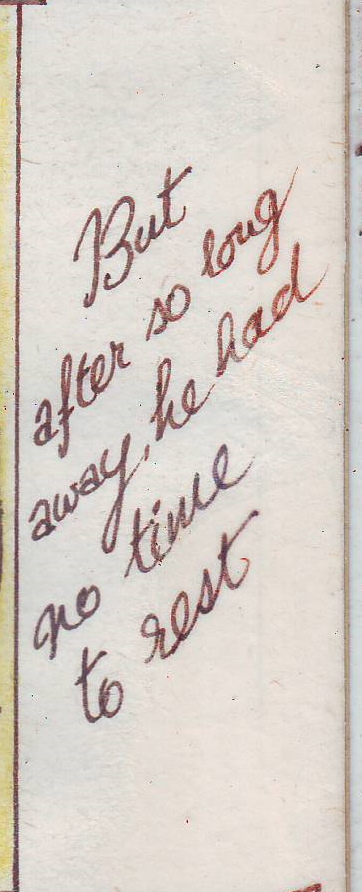 But
after so long
away, he had
no time
to rest